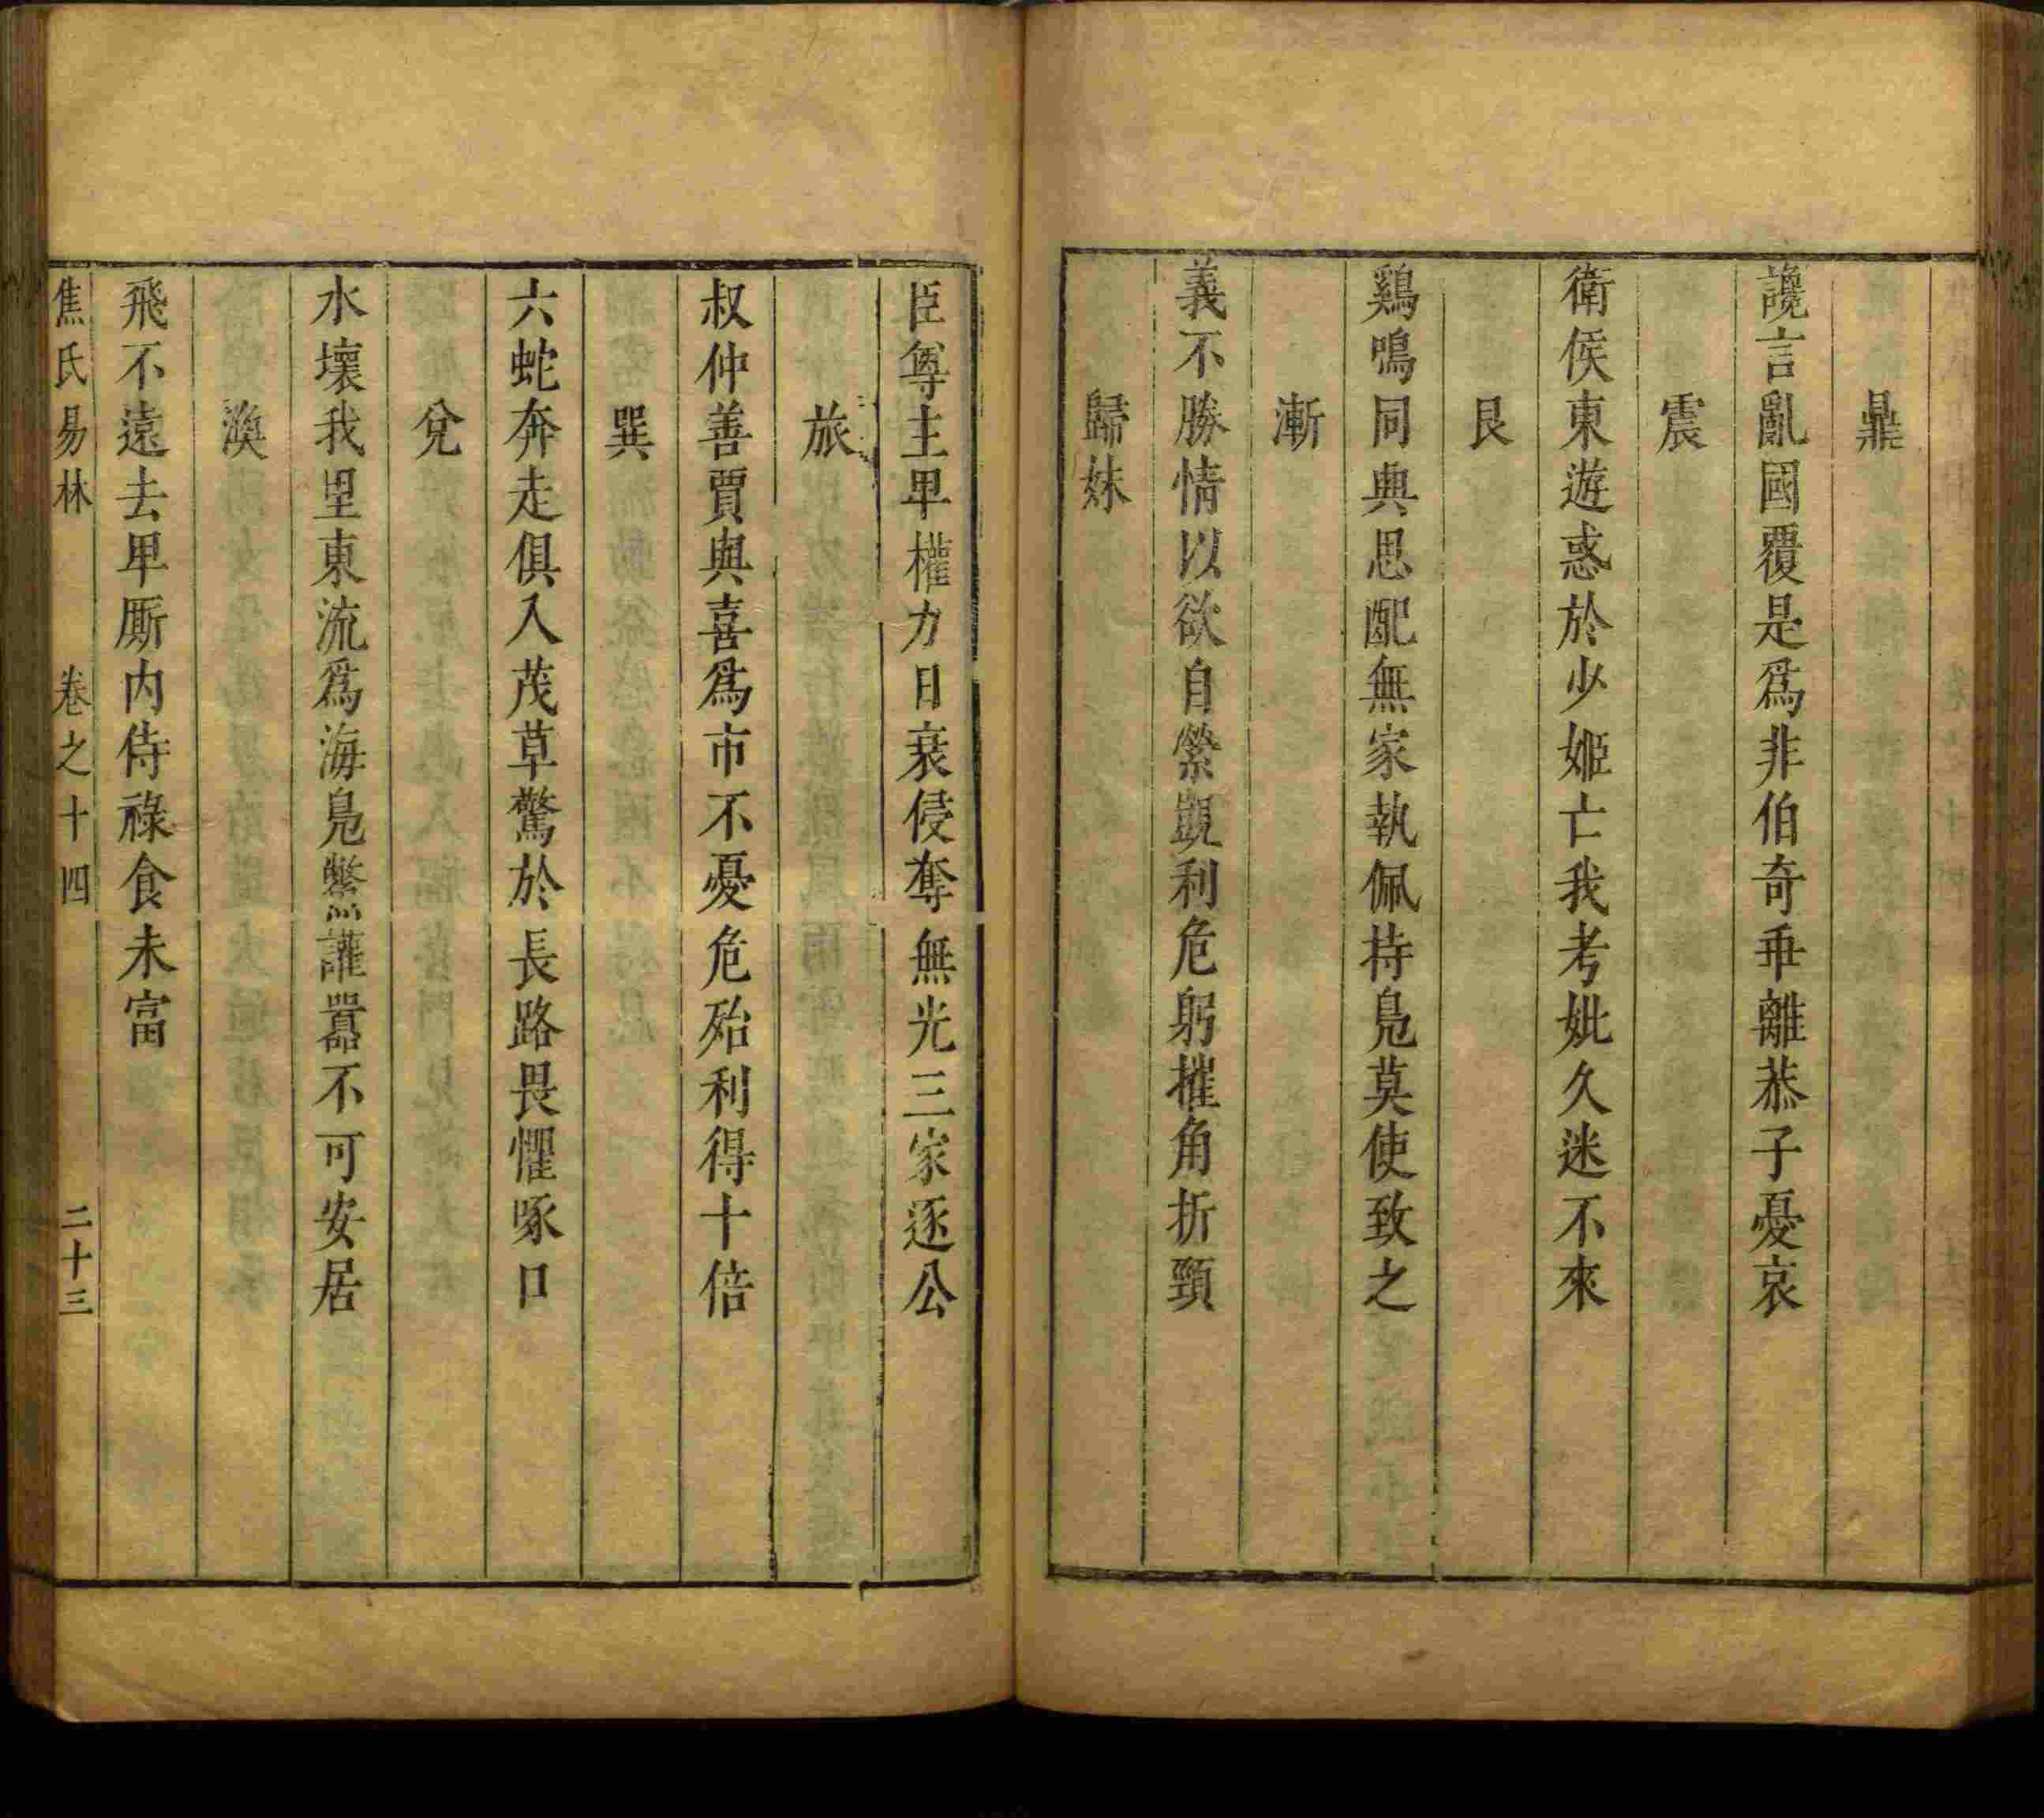 鼎
讒言亂國覆是爲非伯奇乖離恭子憂哀
震
衛侯東遊惑於少姬亡我考妣久迷不來
艮
鷄鳴同興思配無家執佩持鳧莫使致之
漸
義不勝情以欲自縈覬利危躬摧角折頸
歸妹
臣尊主卑權力日衰侵奪無光三家逐公
旅
叔仲善賈與喜爲市不憂危殆利得十倍
巽
六蛇奔走俱入茂草驚於長路畏懼啄口
兌
水壞我里東流爲海鳧鱉讙嚣不可安居
渙
飛不遠去卑厮内侍祿食未富
焦氏易林 卷之十四 二十三